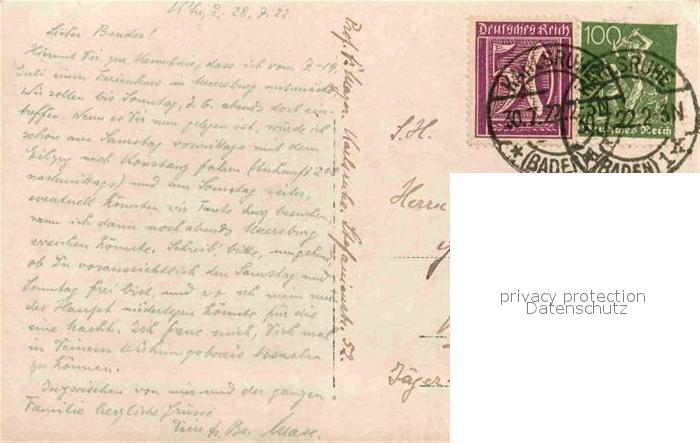 K'he, d. 28.7.22.
Lieber Bruder!
Hiermit Dir zur Kenntnis, dass ich vom 7.-19.
Juli einen Ferienkurs in Meersburg mitmache.
Wir sollen bis Sonntag, d. 6. abends dort ein-
treffen. Wenn es Dir nun gelegen ist, würde ich
schon am Samstag vormittags mit dem
Eilzug nach Konstanz fahren (Ankunft 2 00
nachmittags) und am Sonntag weiter,
eventuell könnten wir Tante besuchen,
wenn ich dann noch abends Meersburg
erreichen könnte. Schreib', bitte, umgehend
ob Du voraussichtlich den Samstag und
Sonntag frei bist, und wo ich mein müdes
Haupt niederlegen könnte für die
eine Nacht. Ich freue mich, Dich mal
in Deinem Wirkungskreis besuchen
zu können.
Inzwischen von mir und der ganzen
Familie herzliche Grüsse
Dein tr. Br. Max.
Prof. Mayer. Karlsruhe. Stefanienstr. 52.
Deutsches Reich
100
Deutsches Reich
KARLSRUHE
30.7.22.2-3N
(BADEN)
KARLSRUHE
30.7.22.2-3N
(BADEN) 1
S. H.
Herrn
Jäger-
privacy protection
Datenschutz